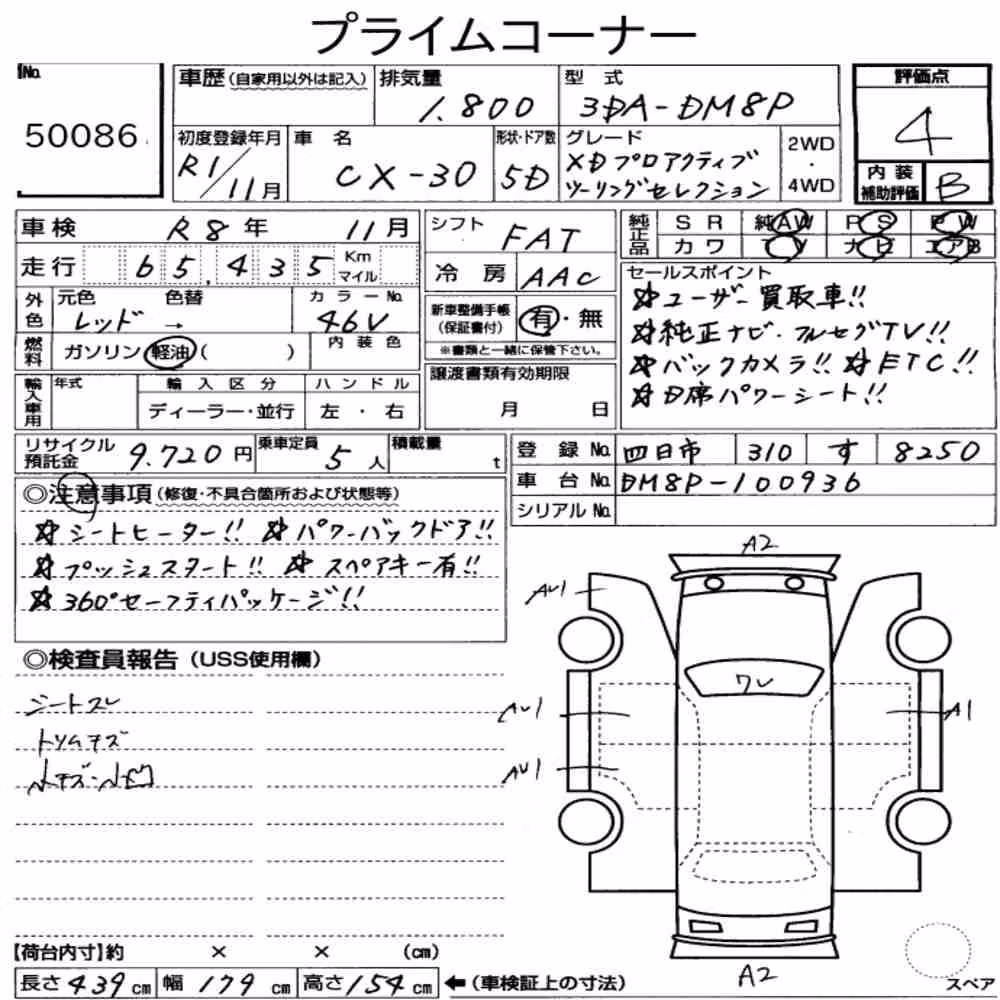 プライムコーナー
No.
50086
車歴(自家用以外は記入)
排気量
1.800
型 式
3DA-DM8P
評価点
4
内 装
補助評価
B
初度登録年月
R1/11月
車 名
CX-30
形状・ドア数
5D
グレード
XDプロアクティブ
ツーリングセレクション
2WD
・
4WD
車検 R8年 11月
走行 65,435 Km
マイル
外色 元色 色替
レッド →
カラーNo.
46V
燃料 ガソリン 軽油( )
内装色
輸入車用 年式
輸入区分
ディーラー・並行
ハンドル
左 ・ 右
シフト FAT
冷房 AAC
新車整備手帳
(保証書付)
有・無
※書類と一緒に保管下さい。
譲渡書類有効期限
月 日
純正品 SR 純AW PS PW
カワ TV ナビ エアB
セールスポイント
☆ユーザー買取車!!
☆純正ナビ・フルセグTV!!
☆バックカメラ!! ☆ETC!!
☆D席パワーシート!!
リサイクル
預託金
9.720円
乗車定員
5人
積載量
t
登録No. 四日市 310 す 8250
車台No. DM8P-100936
シリアルNo.
◎注意事項(修復・不具合箇所および状態等)
☆シートヒーター!! ☆パワーバックドア!!
☆プッシュスタート!! ☆スペアキー有!!
☆360°セーフティパッケージ!!
◎検査員報告(USS使用欄)
シートスレ
トリムキズ
小キズ・小凹
A2
AU1
ワレ
AU1
A1
AU1
A2
スペア
【荷台内寸】約 × × (cm)
長さ439cm 幅179cm 高さ154cm ←(車検証上の寸法)